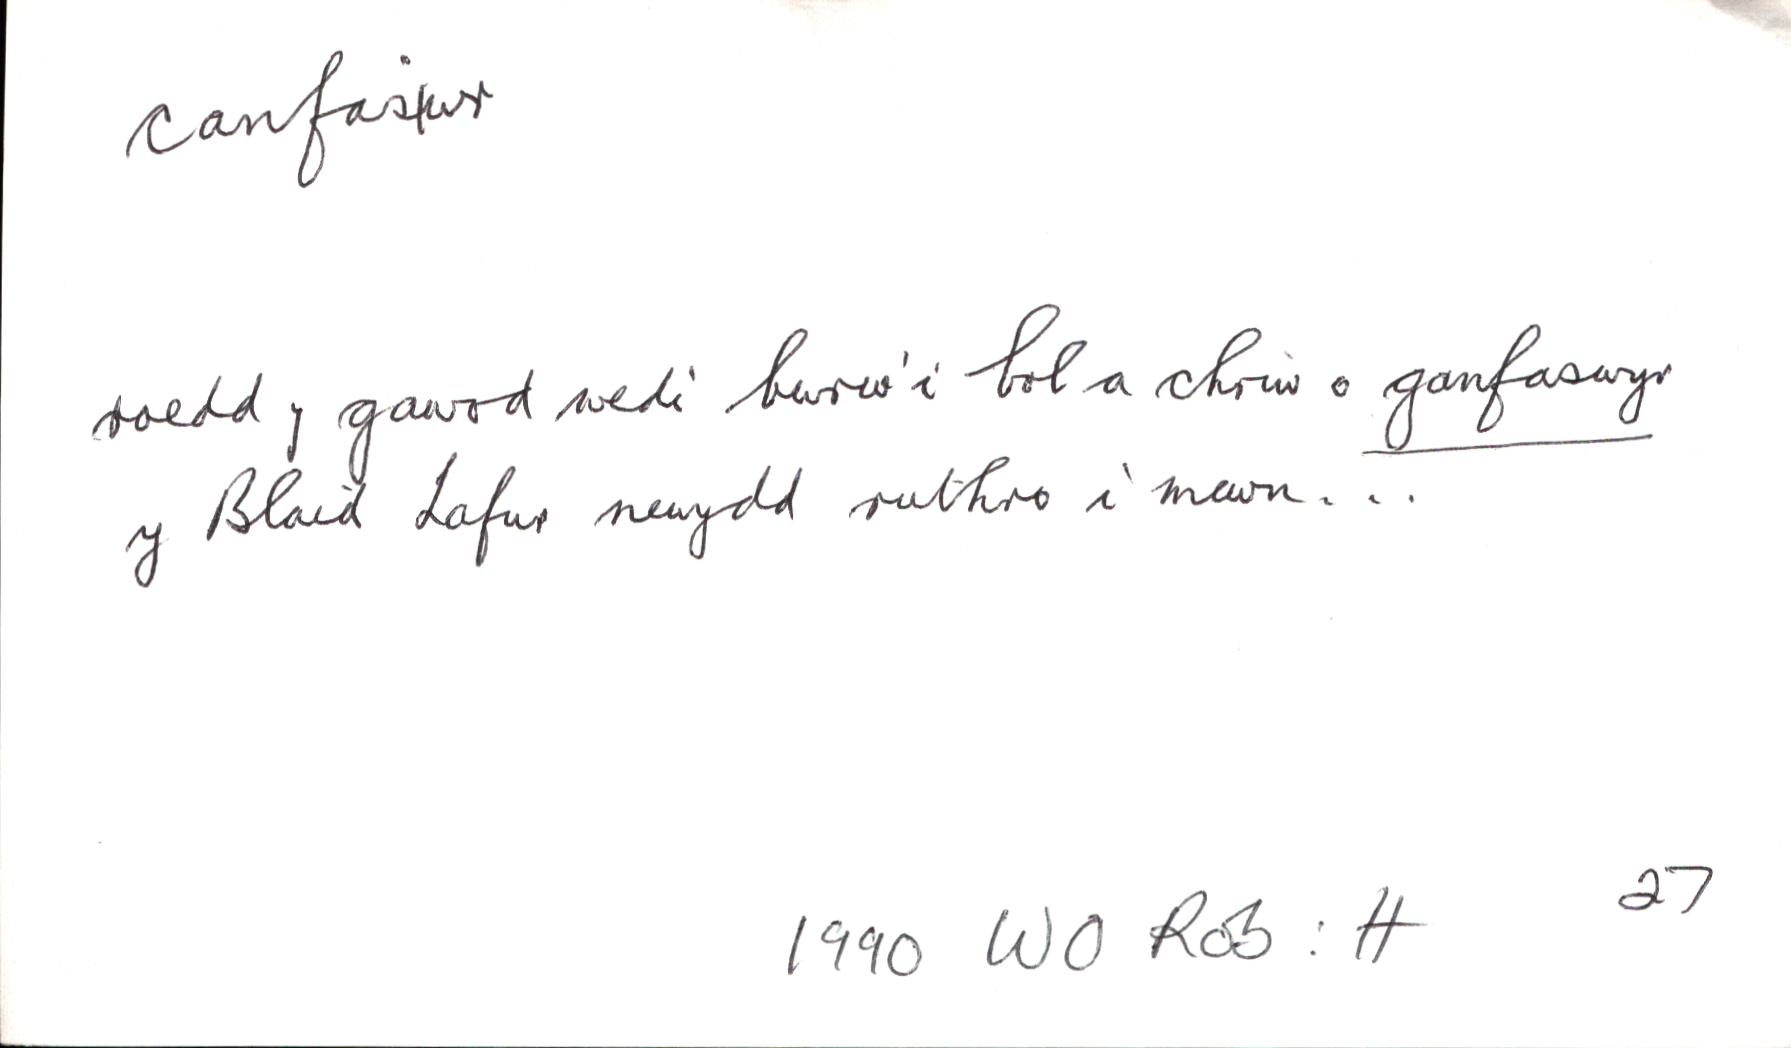 canfasiwr
roedd y gawod wedi bwrw'i bol a chriw o ganfaswyr
y Blaid Lafur newydd ruthro i mewn...
27
1990 WO Rob : H